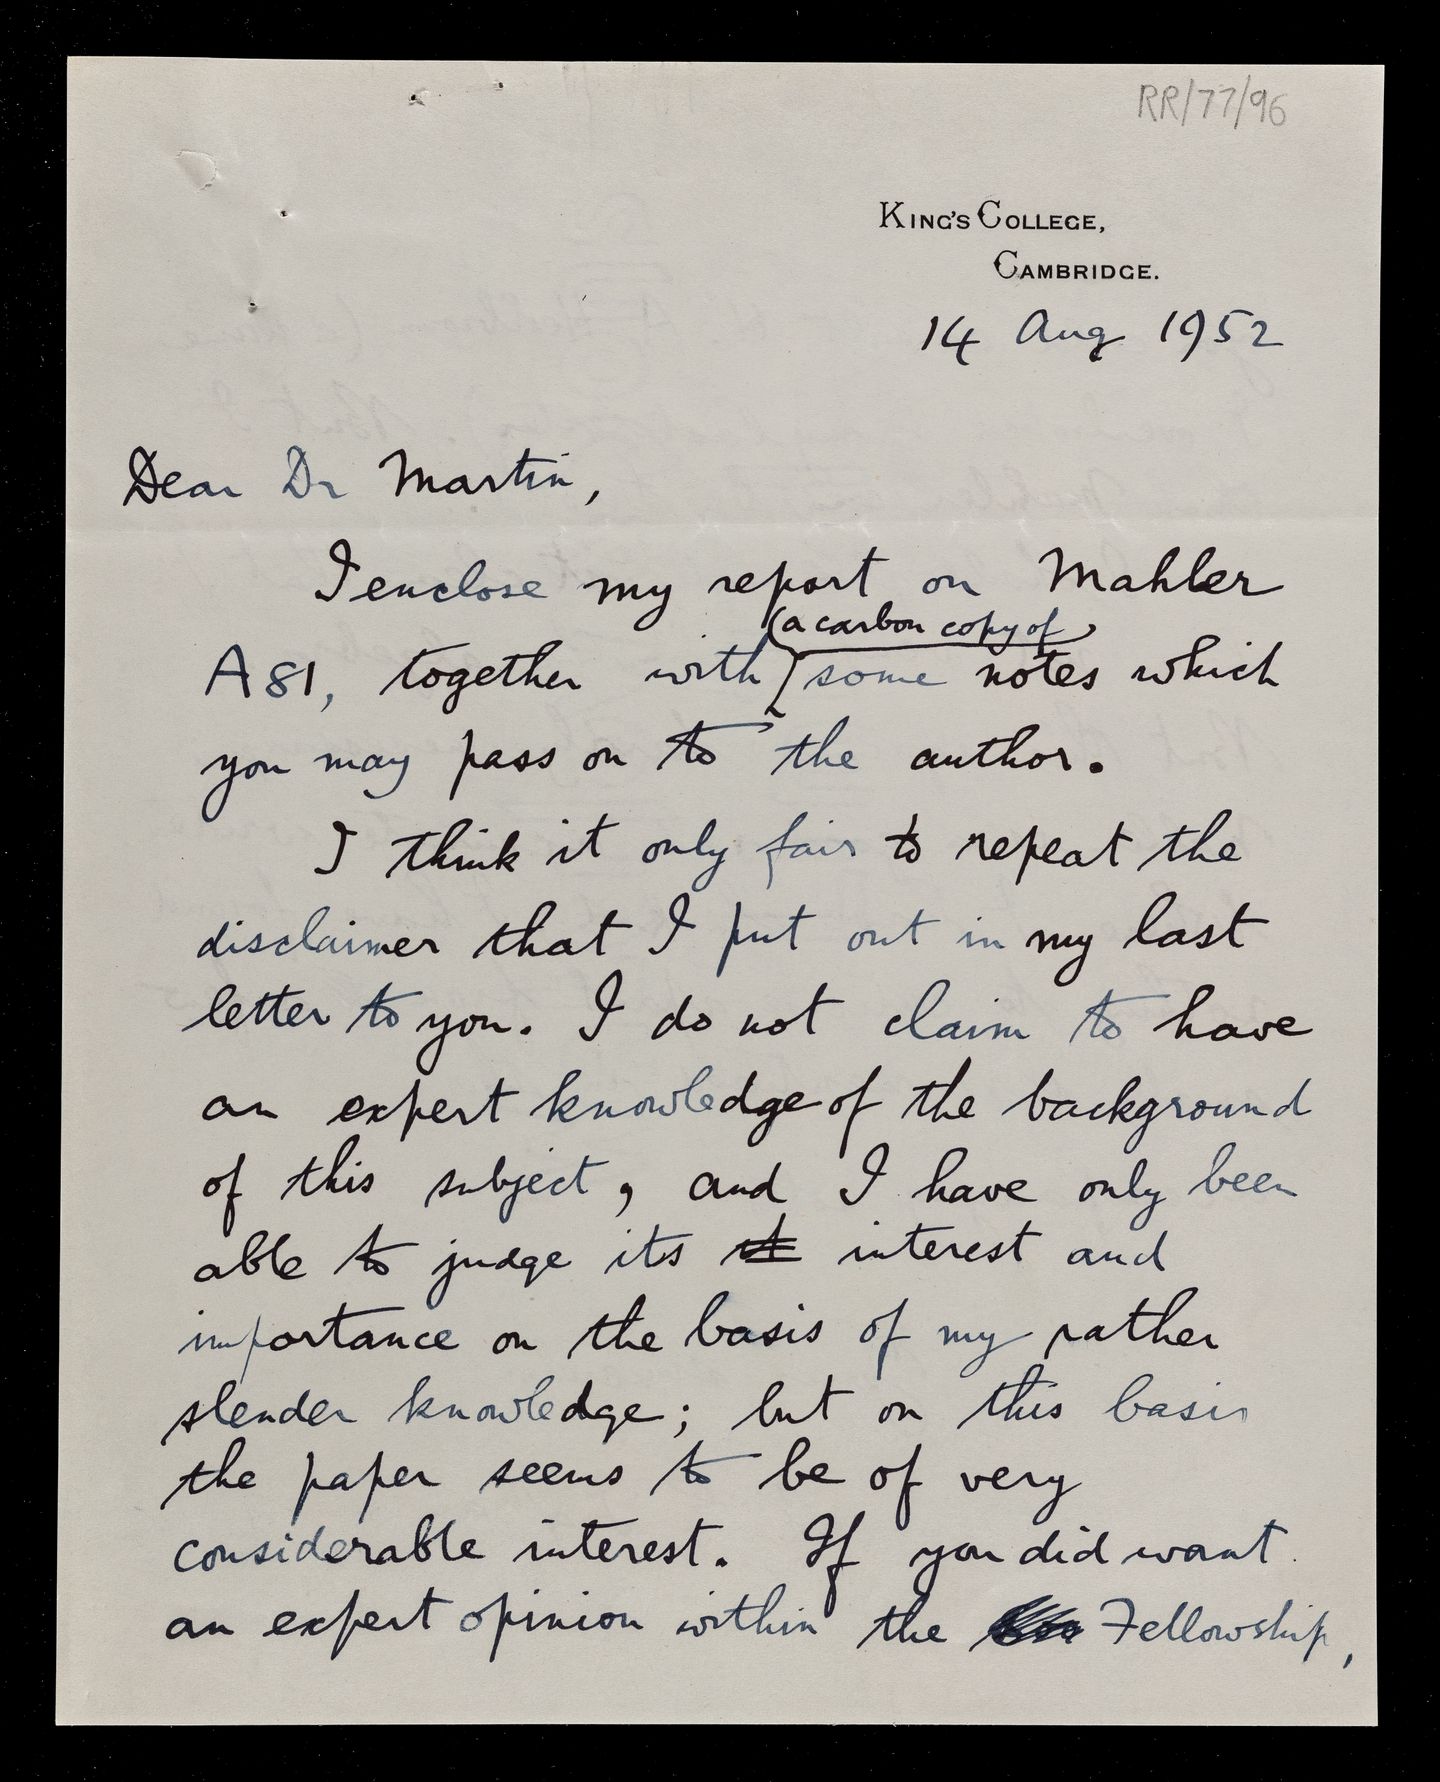 RR/77/96
KING'S COLLEGE,
CAMBRIDGE.
14 Aug 1952
Dear Dr Martin,
I enclose my report on Mahler
(a carbon copy of)
A 81, together with some notes which
you may pass on to the author.
I think it only fair to repeat the
disclaimer that I put out in my last
letter to you. I do not claim to have
an expert knowledge of the background
of this subject, and I have only been
able to judge its interest and
importance on the basis of my rather
slender knowledge; but on this basis
the paper seems to be of very
considerable interest. If you did want
an expert opinion within the Fellowship,